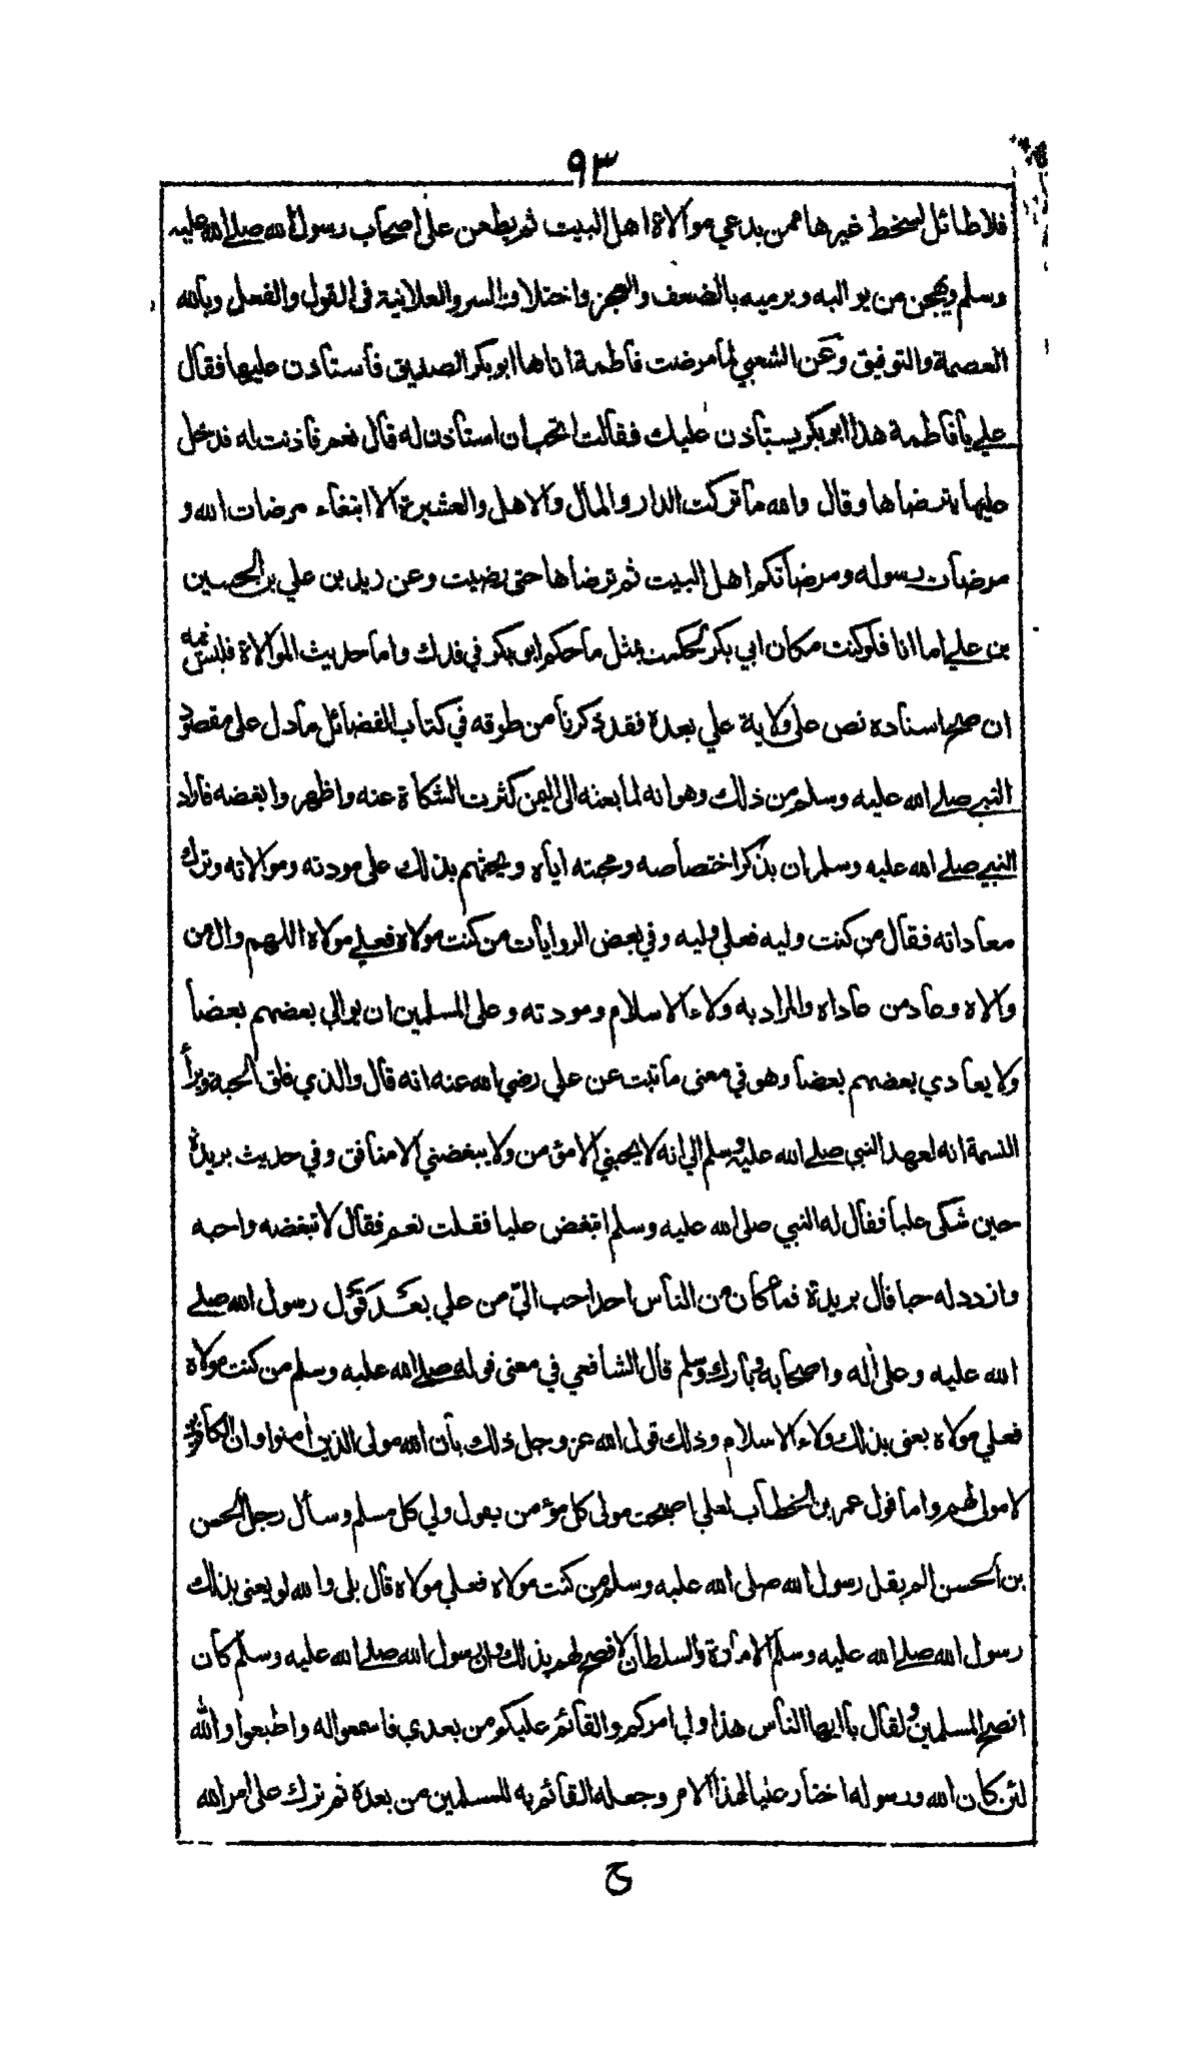 ٩٣
فلا طائل لسخط غيرها ممن يدعي موالاة اهل البيت ثم يطعن على اصحاب رسول الله صلى الله عليه
وسلم ويهجن من يواليه ويرميه بالضعف والعجز واختلاف السر والعلانية فى القول والفعل وبالله
العصمة والتوفيق وعن الشعبي لما مرضت فاطمة اتاها ابو بكر الصديق فأستاذن عليها فقال
علي يا فاطمة هذا ابو بكر يستأذن عليك فقالت اتحب ان استأذن له قال نعم فأذنت له فدخل
عليها يترضاها وقال والله ما تركت الدار والمال والاهل والعشيرة الا ابتغاء مرضات الله و
مرضات رسوله ومرضاتكم اهل البيت ثم ترضاها حتى رضيت وعن زيد بن علي بن الحسين
بن علي اما انا فلو كنت مكان ابي بكر لحكمت بمثل ما حكم ابو بكر في فدك واما حديث الموالاة فليس فيه
ان صح اسناده نص على ولاية علي بعده فقد ذكرنا من طرقه في كتاب الفضائل ما دل على مقصود
النبي صلى الله عليه وسلم من ذلك وهو انه لما بعثه الى اليمن كثرت الشكاة عنه واظهروا بغضه فأراد
النبي صلى الله عليه وسلم ان يذكر اختصاصه ومحبته اياه ويحثهم بذلك على مودته وموالاته وترك
معاداته فقال من كنت وليه فعلي وليه وفي بعض الروايات من كنت مولاه فعلي مولاه اللهم وال من
والاه وعاد من عاداه والمراد به ولاء الاسلام ومودته وعلى المسلمين ان يوالي بعضهم بعضا
ولا يعادي بعضهم بعضا وهو في معنى ما ثبت عن علي رضي الله عنه انه قال والذي فلق الحبة وبرأ
النسمة انه لعهد النبي صلى الله عليه وسلم الي انه لا يحبني الا مؤمن ولا يبغضني الا منافق وفي حديث بريدة
حين شكى عليا فقال له النبي صلى الله عليه وسلم اتبغض عليا فقلت نعم فقال لا تبغضه واحبه
وازدد له حبا قال بريدة فما كان من الناس احد احب اليّ من علي بعد قول رسول الله صلى
الله عليه وعلى اله واصحابه وبارك وسلم قال الشافعي في معنى قوله صلى الله عليه وسلم من كنت مولاه
فعلي مولاه يعنى بذلك ولاء الاسلام وذلك قول الله عز وجل ذلك بأن الله مولى الذين امنوا وان الكافرين
لا مولى لهم واما قول عمر بن الخطاب لعلي اصبحت مولى كل مؤمن يقول ولي كل مسلم وسأل رجل الحسن
بن الحسن الم يقل رسول الله صلى الله عليه وسلم من كنت مولاه فعلي مولاه قال بلى والله لو يعنى بذلك
رسول الله صلى الله عليه وسلم الامارة والسلطان لافصح لهم بذلك وان رسول الله صلى الله عليه وسلم كان
انصح المسلمين ولقال يا ايها الناس هذا ولي امركم والقائم عليكم من بعدي فاسمعوا له واطيعوا والله
لئن كان الله ورسوله اختار عليا لهذا الامر وجعله القائم به للمسلمين من بعده ثم ترك علي امر الله
ح